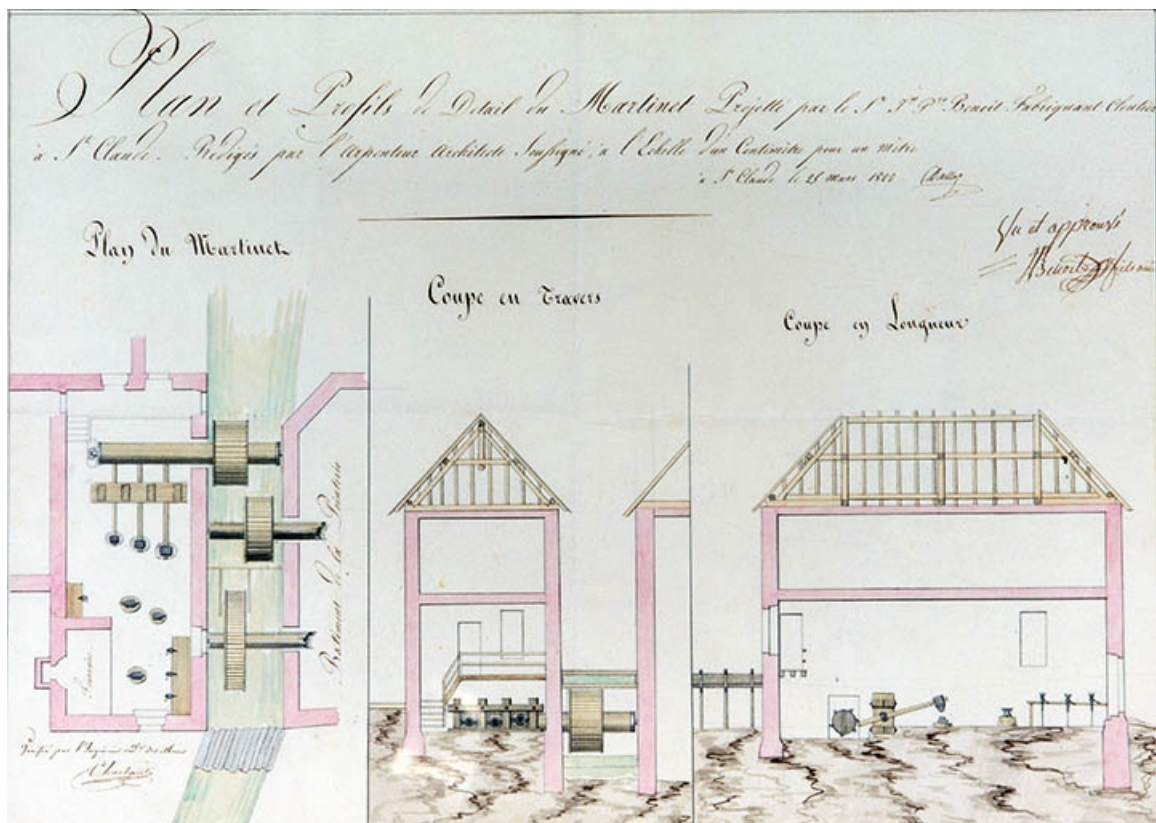 Plan et Profils de Detail du Martinet Projetté par le Sr. Jn. Pre. Benoit Fabriquant Cloutier
à St. Claude. Rédigés par l'Arpenteur Architecte Soussigné, à l'Echelle d'un Centimètre pour un mètre
à St. Claude le 25 mars 1822
Vu et approuvé
Benoit fils ainé
Plan du Martinet
Coupe en Travers
Coupe en Longueur
Batiment de la
Vérifié par l'Ingénieur des Mines